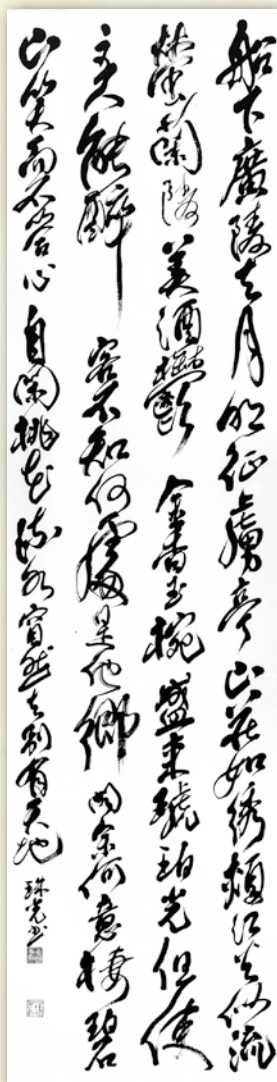 船下廣陵去月明征虜亭山花如绣頰江火似流
螢蘭陵美酒鬱金香玉椀盛来琥珀光但使
主人能醉客不知何處是他鄉問余何意棲碧
山笑而不答心自閑桃花流水窅然去別有天地